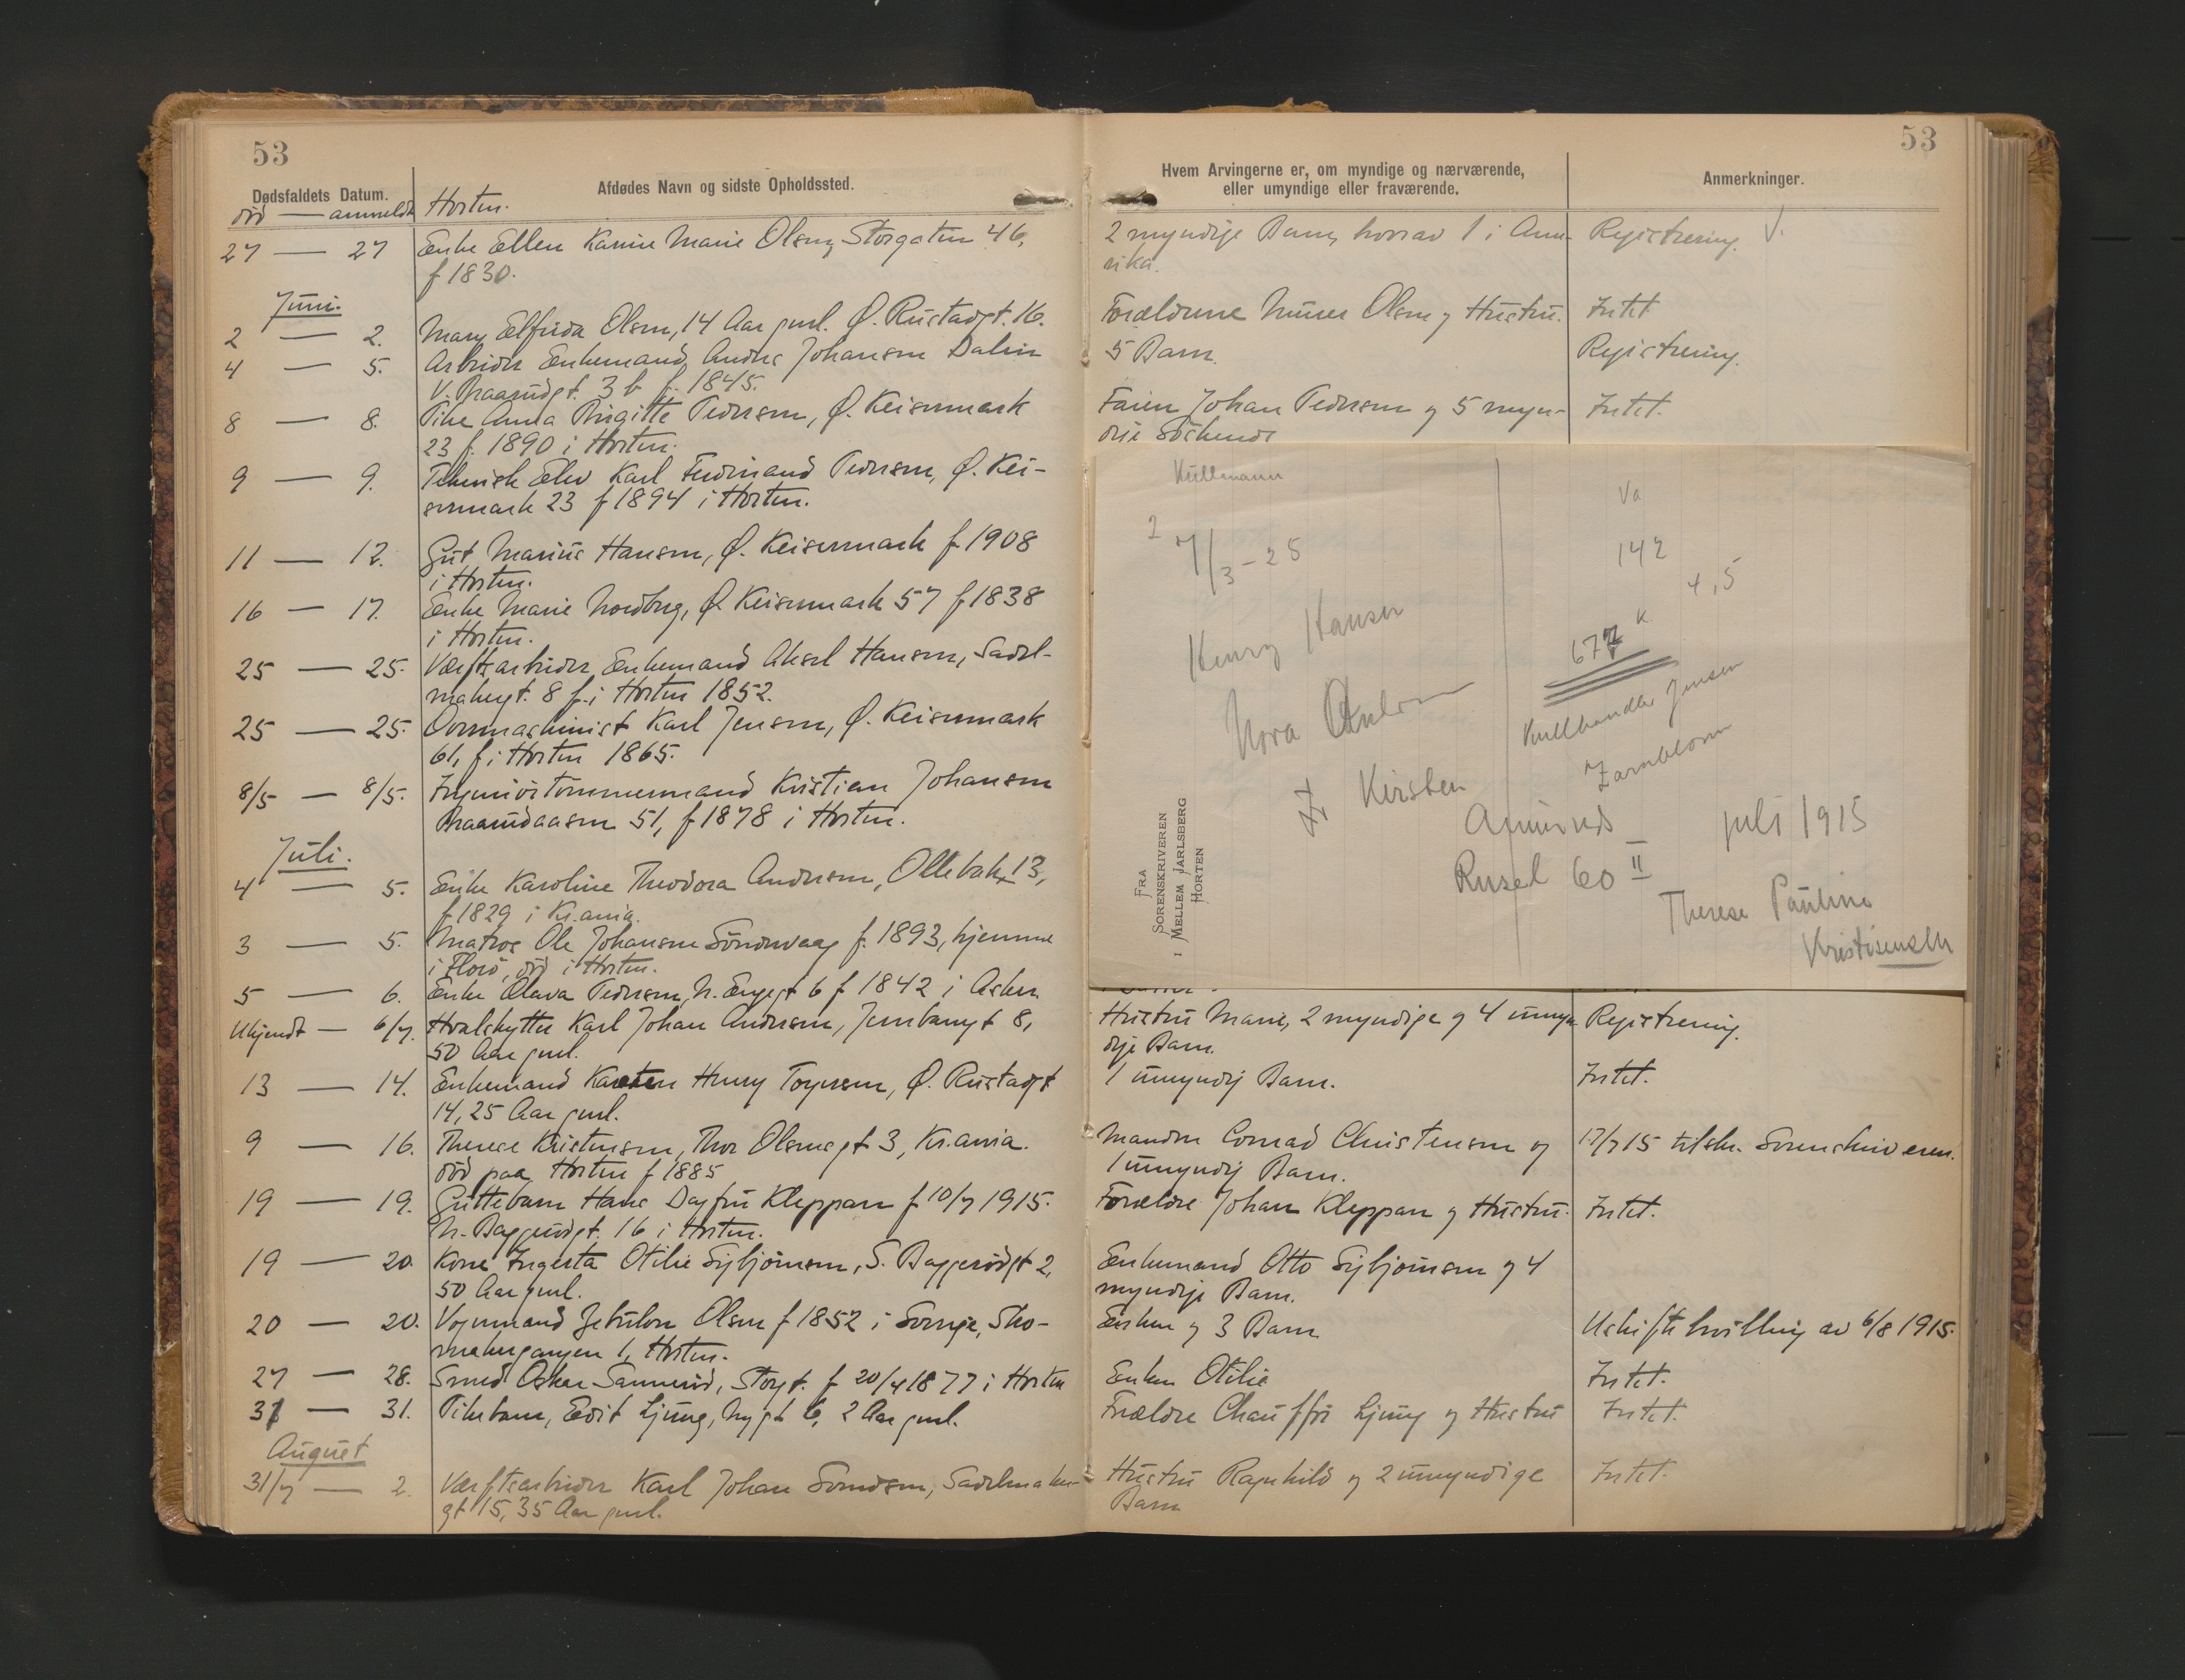 53
Dødsfaldets Datum.
Afdødes Navn og sidste Opholdssted.
død — anmeldt Horten.
27 — 27 Enke Ellen Karine Marie Olsen, Storgaten 46,
f 1830.
Juni.
2 — 2. Mary Elfrida Olsen, 14 Aar gml. Ø. Rustadgt. 16.
4 — 5. Arbeider Enkemand Andrs Johansen Dalen
V. Braarudgt. 3 b f. 1845.
8 — 8. Pike Anna Birgitte Pedersen, Ø. Keisermark
23 f. 1890 i Horten.
9 — 9. Teknisk Elev Karl Ferdinand Pedersen, Ø. Kei-
sermark 23 f 1894 i Horten.
11 — 12. Gut Marius Hansen, Ø. Keisermark f 1908
i Horten.
16 — 17. Enke Marie Nordberg, Ø. Keisermark 57 f 1838
i Horten.
25 — 25. Værftsarbeider Enkemand Aksel Hansen, Sadel-
makergt. 8 f. i Horten 1852.
25 — 25. Overmaskinist Karl Jensen, Ø. Keisermark
61, f i Horten 1865.
8/5 — 8/5. Ingeniørtømmermand Kristian Johansen
Braarudaasen 51, f 1878 i Horten.
Juli.
4 — 5. Enke Karoline Theodora Andersen, Ollebakk. 13,
f 1829 i Kr.ania.
3 — 5. Matros Ole Johansen Søndervaag f. 1893, hjemme
i Florø, død i Horten.
5 — 6. Enke Olava Pedersen, N. Engegt 6 f 1842 i Asker.
Ukjendt — 6/7. Hvalskytter Karl Johan Andersen, Jernbanegt 8,
50 Aar gml.
13 — 14. Enkemand Karsten Henry Torgersen, Ø. Rustadgt
14, 25 Aar gml.
9 — 16. Therese Kristensen, Thor Olsensgt 3, Kr.ania.
død paa Horten f 1885
19 — 19. Guttebarn Hans Dagfin Kleppan f 10/7 1915.
N. Baggerødgt. 16 i Horten.
19 — 20. Kone Ingerta Otilie Sigbjørnsen, S. Baggerødgt 2,
50 Aar gml.
20 — 20. Vognmand Zebulon Olsen f 1852 i Sverige, Sko-
makergangen 1, Horten.
27 — 28. Smed Oskar Sannerud, Storgt. f 20/4 1877 i Horten
31 — 31. Pikebarn, Edit Ljung, Nygt 6, 2 Aar gml.
August
31/7 — 2. Værftsarbeider Karl Johan Svendsen, Sadelmaker-
gt 15, 35 Aar gml.
53
Hvem Arvingerne er, om myndige og nærværende,
eller umyndige eller fraværende.
Anmerkninger.
2 myndige Barn, hvorav 1 i Ame- Registrering. V.
rika.
Forældrene Murer Olsen og Hustru. Intet
5 Barn. Registrering.
Faren Johan Pedersen og 5 myn- Intet.
dige Søskende
Kullmann
2 7/3-25
Henry Hansen
Nora
Kirsten
Va
142
4,5
677 K.
Kullhandler Jensen
Jarnblom
Amunds
Rusel 60 II
juli 1915
Therese Pauline
Kristisensen
FRA
SORENSKRIVEREN
I MELLEM JARLSBERG
HORTEN
Hustru Marie, 2 myndige og 4 umyn- Registrering.
dige Barn.
1 umyndig Barn. Intet.
Manden Conrad Christensen og 17/7 15 tilskr. Sorenskriveren.
1 umyndig Barn.
Forældre Johan Kleppan og Hustru. Intet.
Enkemand Otto Sigbjørnsen og 4
myndige Barn.
Enken og 3 Barn Uskiftebevilling av 6/8 1915.
Enken Otilie Intet.
Forældre Chauffør Ljung og Hustru Intet.
Hustru Ragnhild og 2 umyndige Intet.
Barn